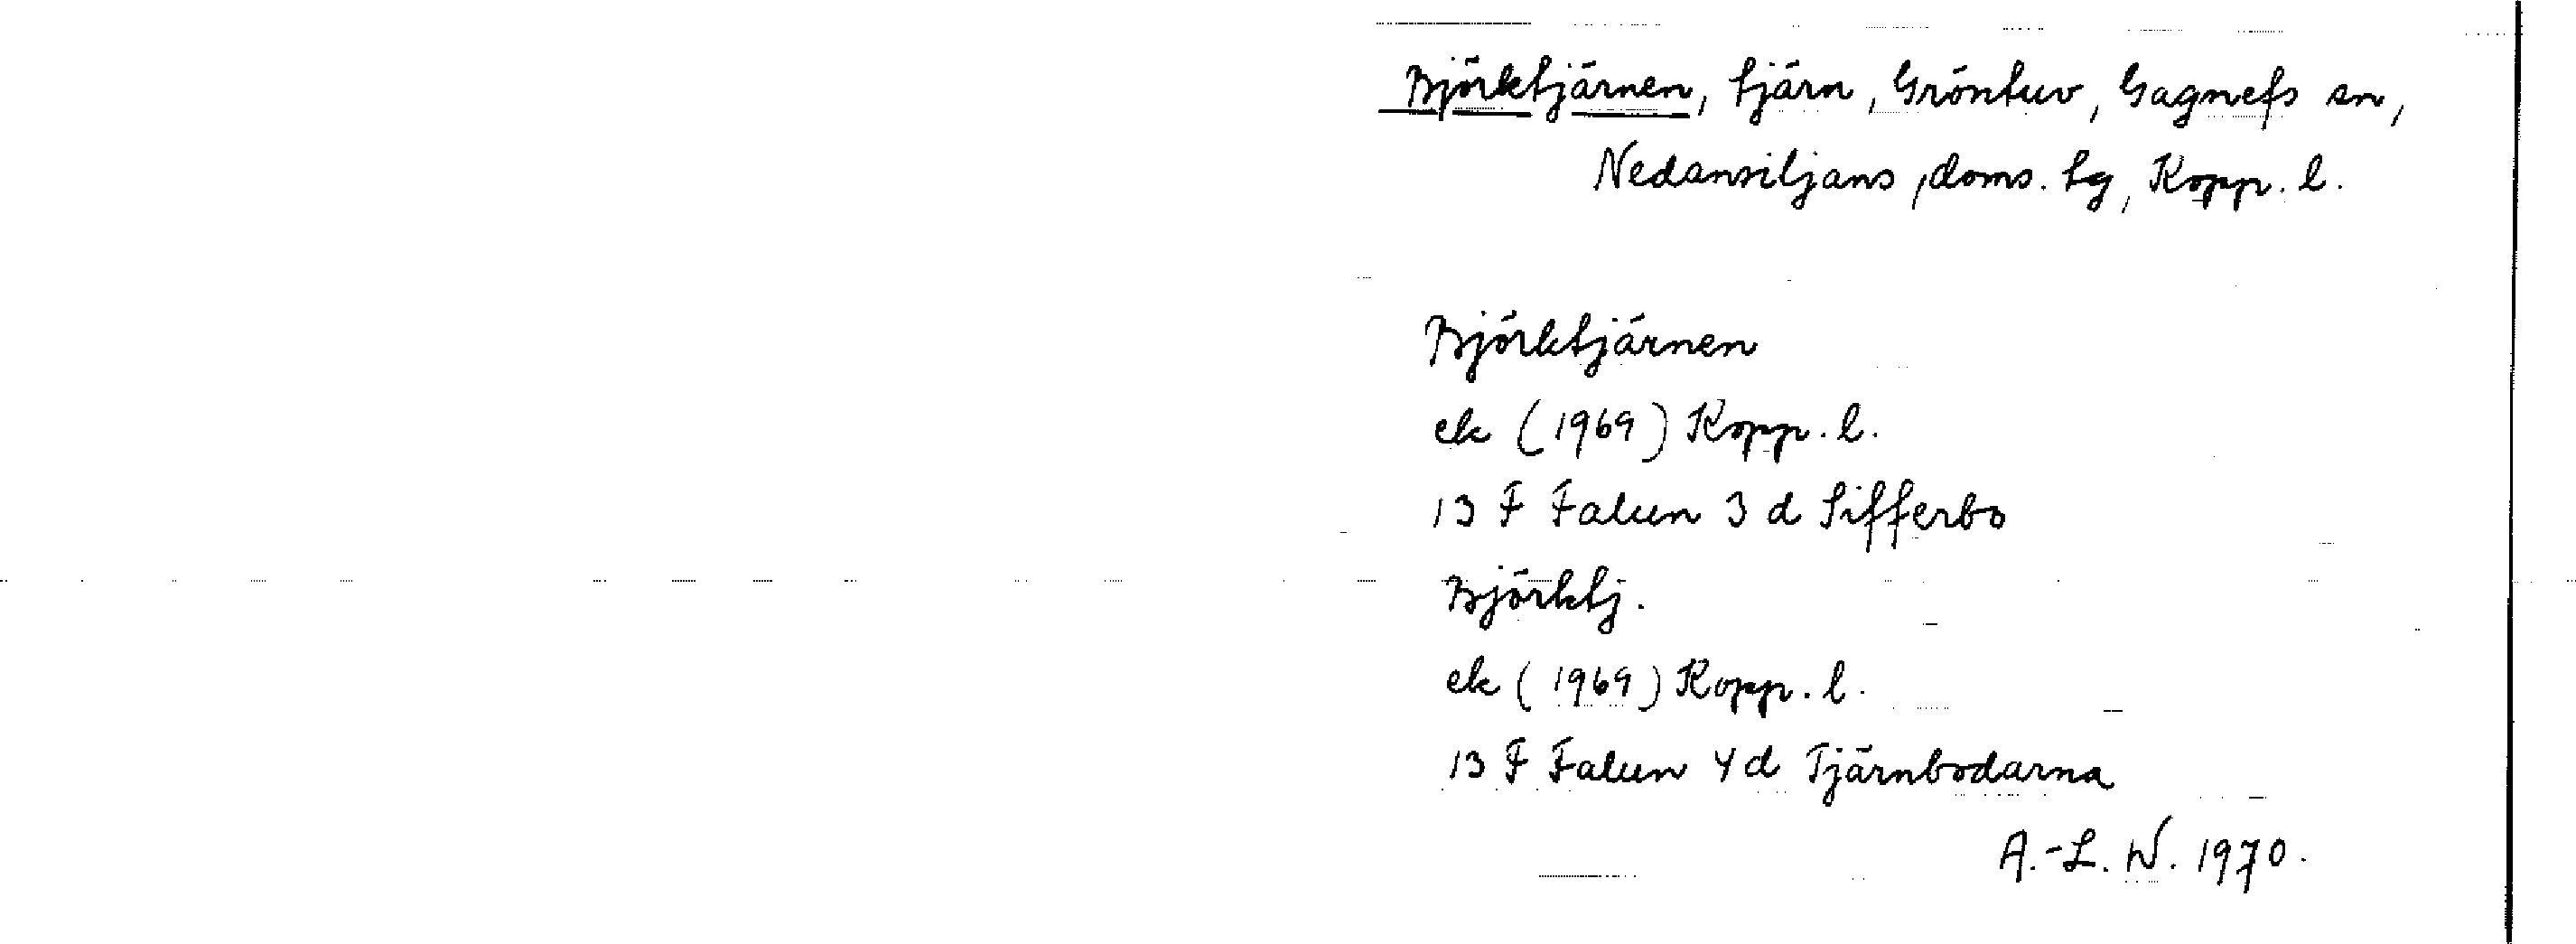 Björktjärnen, tjärn, Gröntuv, Gagnefs sn,
Nedansiljans, doms. tg, Kopp. l.
Björktjärnen
ek (1969) Kopp. l.
13 F Falun 3 d Sifferbo
Björktj.
ek (1969) Kopp. l.
13 F Falun 4 d Tjärnbodarna
A.-L. W. 1970.